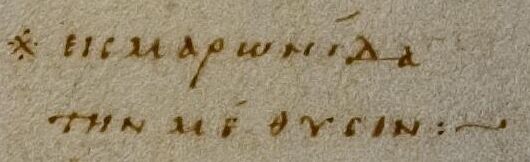 ※ εισμαρωνίδα
την μέθυσιν:~